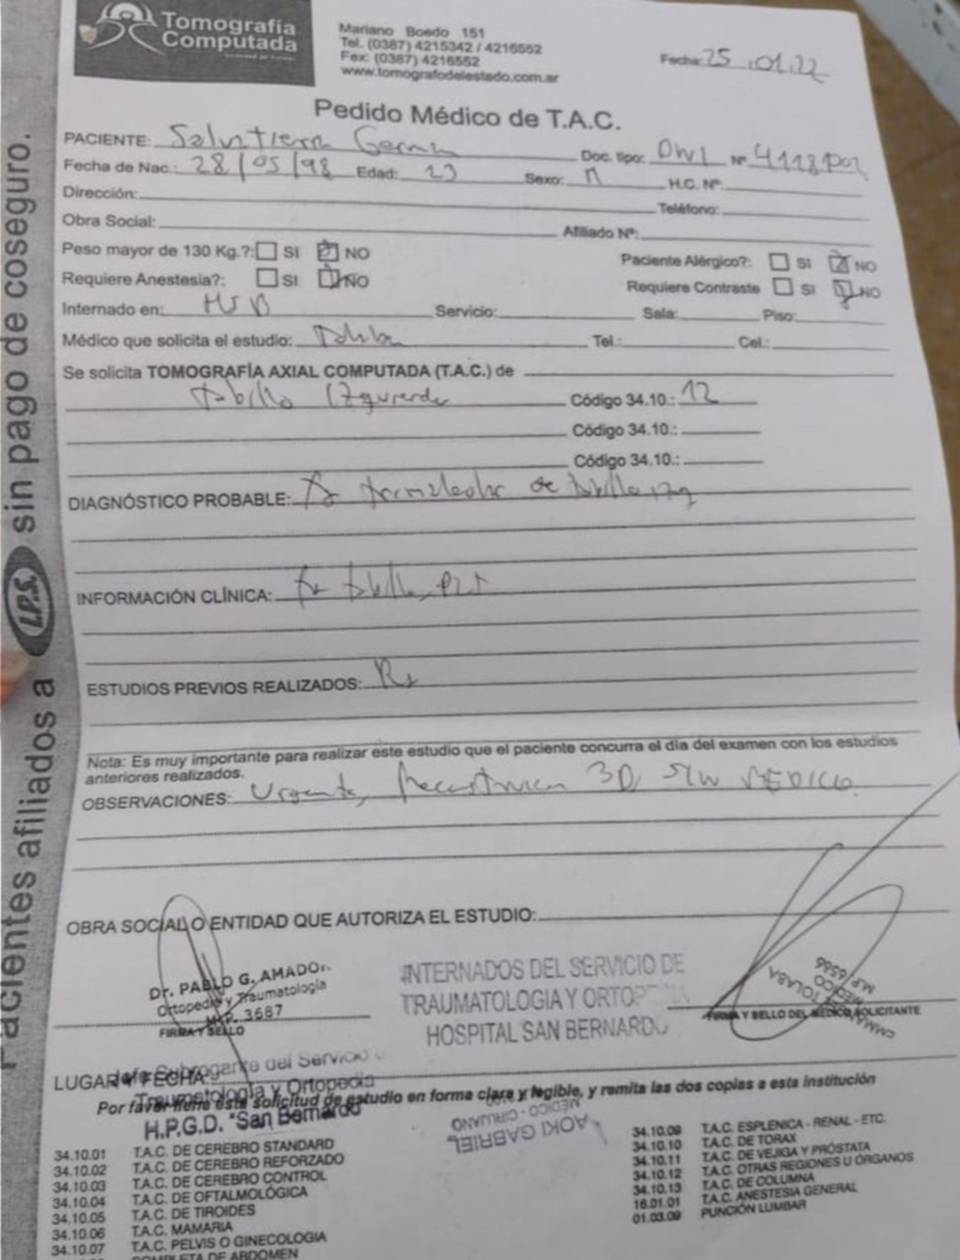 Tomografía
Computada
Mariano Boedo 151
Tel. (0387) 4215342 / 4216552
Fax: (0387) 4216552
www.tomografodelestado.com.ar
Fecha: 25.01.22
Pedido Médico de T.A.C.
PACIENTE: Salvatierra German Doc. tipo: DNI Nº
Fecha de Nac.: 28/05/98 Edad: 23 Sexo: M H.C. Nº:
Dirección: Teléfono:
Obra Social: Afiliado Nº:
Peso mayor de 130 Kg.?: SI NO Paciente Alérgico?: SI NO
Requiere Anestesia?: SI NO Requiere Contraste SI NO
Internado en: HSB Servicio: Sala: Piso:
Médico que solicita el estudio: Tel.: Cel.:
Se solicita TOMOGRAFÍA AXIAL COMPUTADA (T.A.C.) de
tobillo Izquierdo Código 34.10.: 12
Código 34.10.:
Código 34.10.:
DIAGNÓSTICO PROBABLE: Fx de tobillo izq
INFORMACIÓN CLÍNICA: Fx tobillo,
ESTUDIOS PREVIOS REALIZADOS: Rx
Nota: Es muy importante para realizar este estudio que el paciente concurra el día del examen con los estudios
anteriores realizados.
OBSERVACIONES: Urgente, 3D, SIN MEDICO
OBRA SOCIAL O ENTIDAD QUE AUTORIZA EL ESTUDIO:
Dr. PABLO G. AMADOR
Ortopedia y Traumatología
M.P. 3687
FIRMA Y SELLO
INTERNADOS DEL SERVICIO DE
TRAUMATOLOGIA Y ORTOPEDIA
HOSPITAL SAN BERNARDO
TOLABA
MEDICO
FIRMA Y SELLO DEL MÉDICO SOLICITANTE
Jefe Subrogante del Servicio
LUGAR Y FECHA:
Traumatología y Ortopedia
Por favor llene esta solicitud de estudio en forma clara y legible, y remita las dos copias a esta institución
H.P.G.D. "San Bernardo"
AOKI GABRIEL
MÉDICO - CIRUJANO
34.10.01 T.A.C. DE CEREBRO STANDARD
34.10.02 T.A.C. DE CEREBRO REFORZADO
34.10.03 T.A.C. DE CEREBRO CONTROL
34.10.04 T.A.C. DE OFTALMOLÓGICA
34.10.05 T.A.C. DE TIROIDES
34.10.06 T.A.C. MAMARIA
34.10.07 T.A.C. PELVIS O GINECOLOGIA
COMPLETA DE ABDOMEN
34.10.09 T.A.C. ESPLENICA - RENAL - ETC.
34.10.10 T.A.C. DE TORAX
34.10.11 T.A.C. DE VEJIGA Y PRÓSTATA
34.10.12 T.A.C. OTRAS REGIONES U ÓRGANOS
34.10.13 T.A.C. DE COLUMNA
16.01.01 T.A.C. ANESTESIA GENERAL
01.03.09 PUNCIÓN LUMBAR
Pacientes afiliados a I.P.S. sin pago de coseguro.